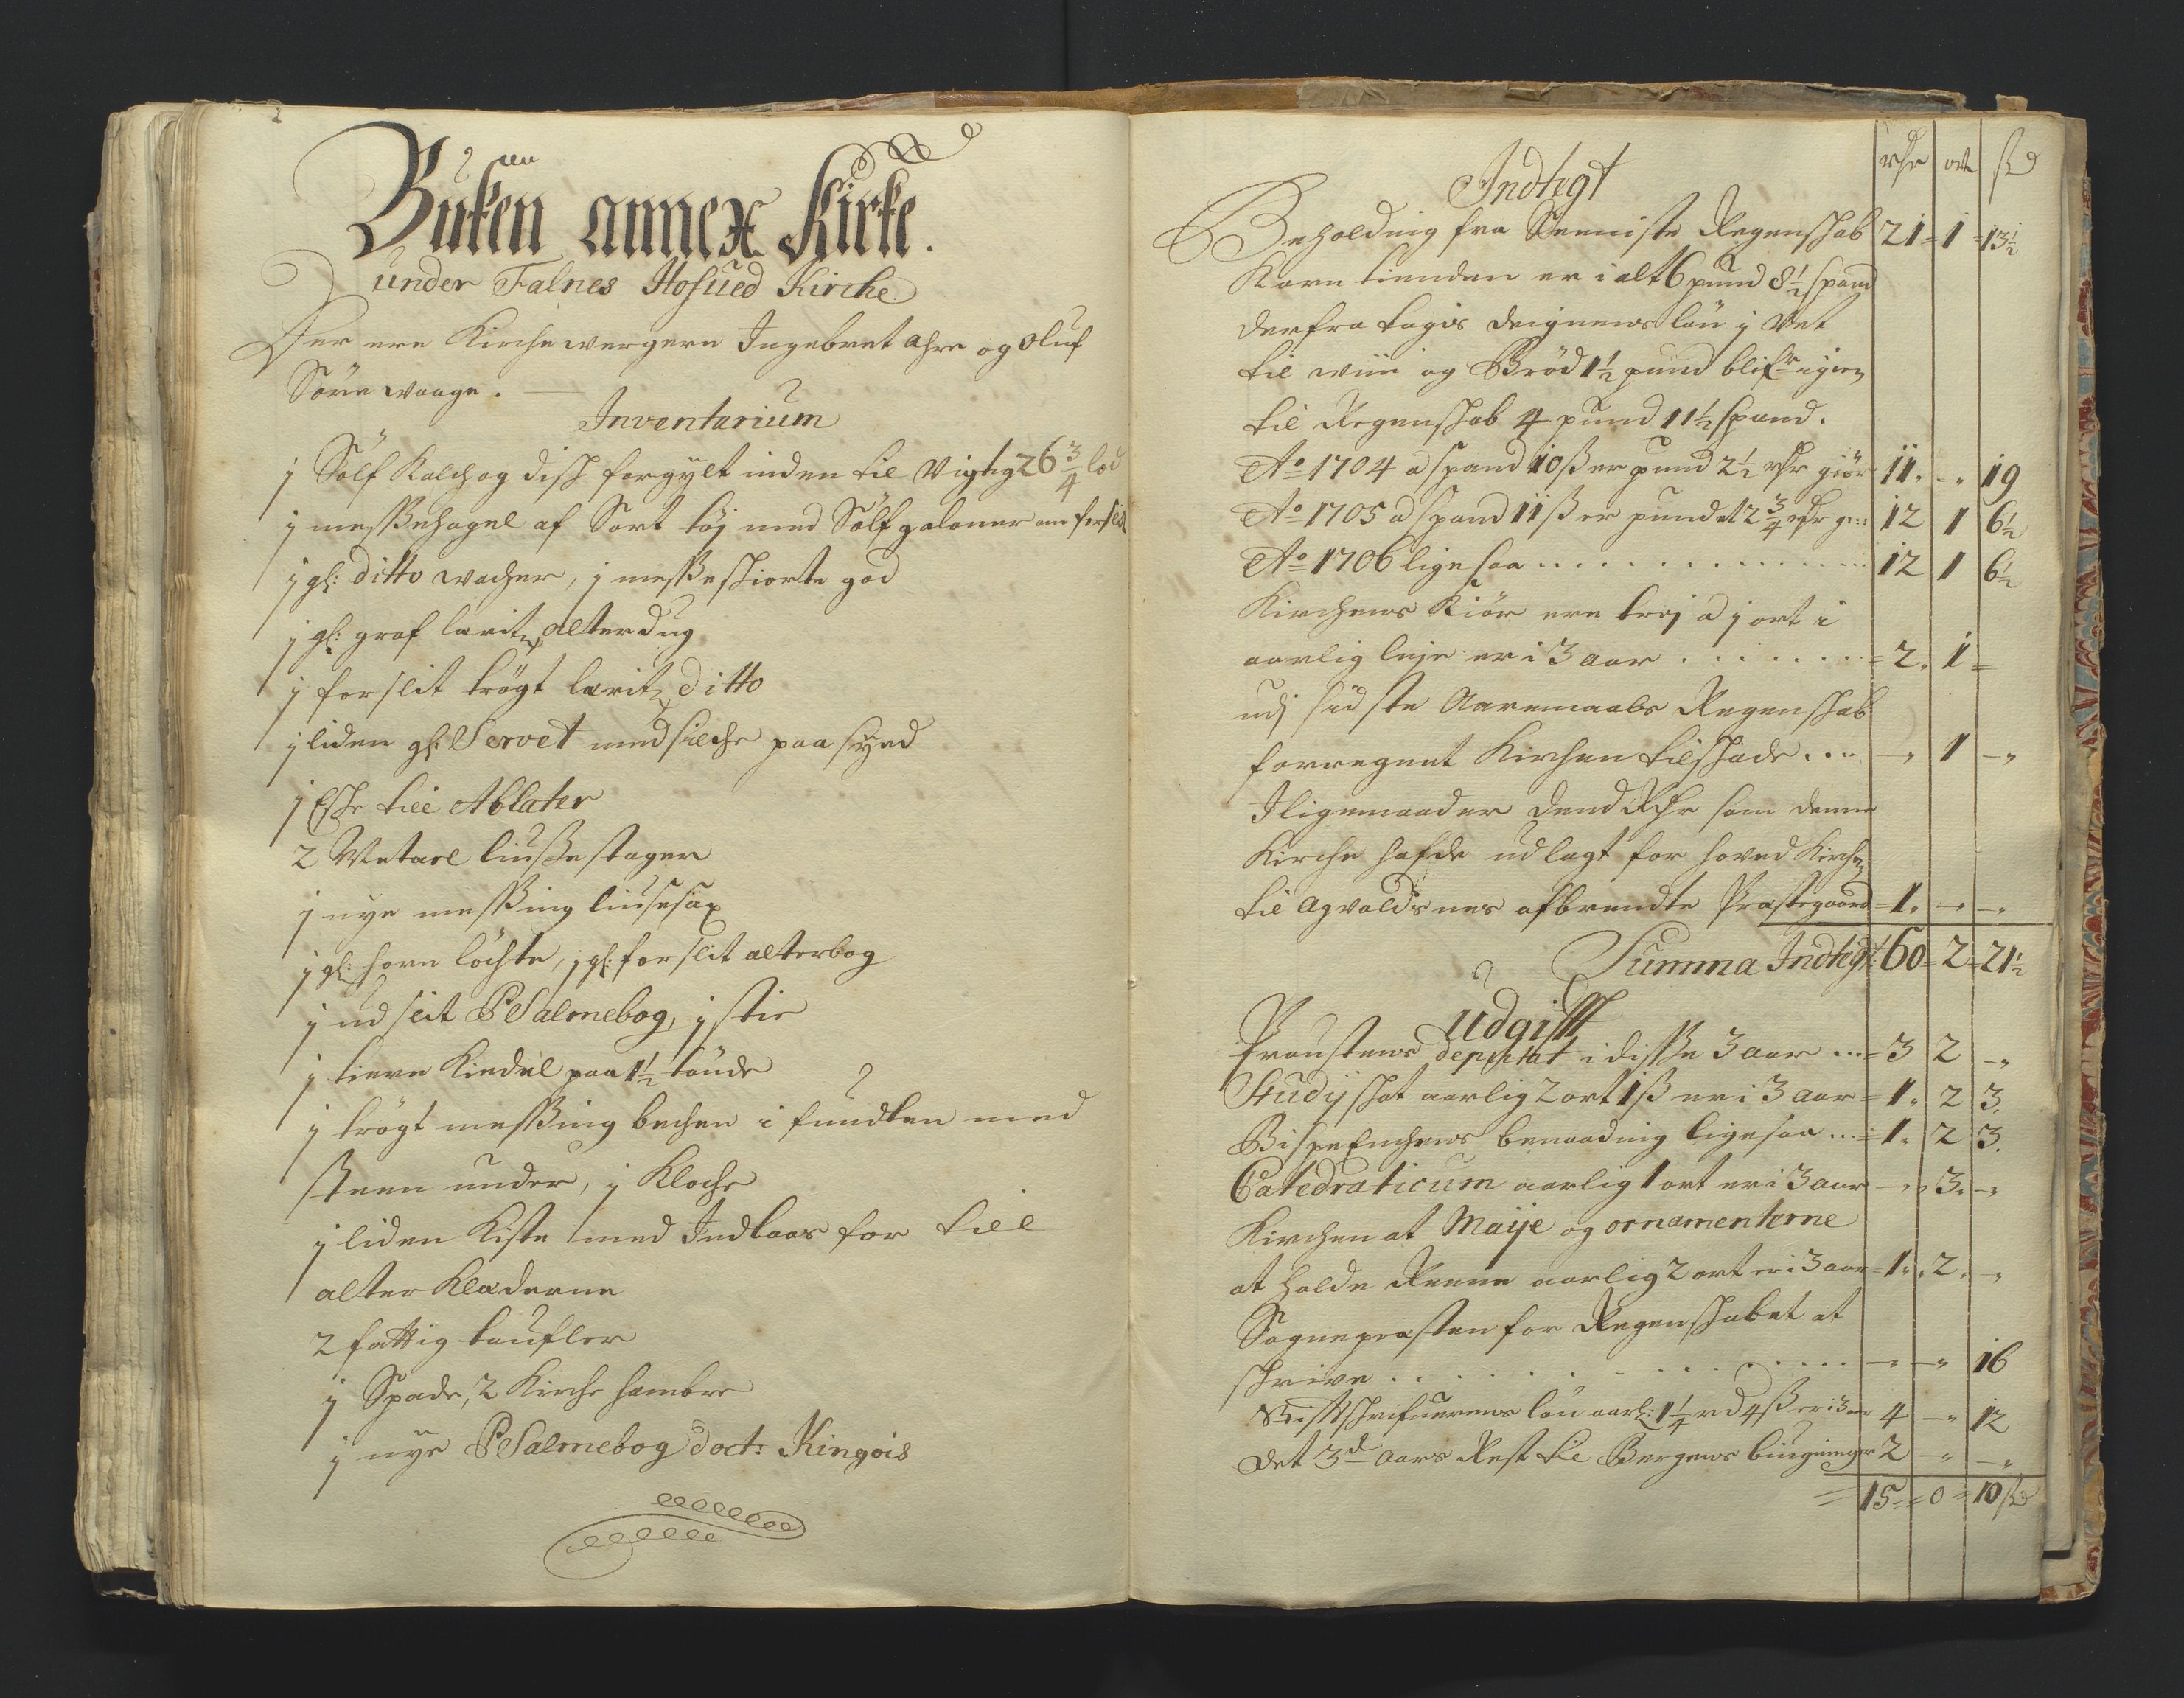 Buken annex Kirke.
under Falnes Hofued Kirche
Der ere Kirchewergere Ingebret Ahre og Oluf
Söre Waage.
Inventarium
j Sölf Kalch og disch forgylt inden til Vigtig 26 3/4 lod
j messehagel af Sort töj med Sölf galoner om forslit
j gl: ditto wacher, j messeskiorte god
j gl: graf lærit alterdug
j forslit brögt lærit ditto
j liden gl: Servet med silche paa syed
j Esche till Ablater
2 Metael liusse stager
j nye messing liusesax
j gl: horn löchte, j gl: forslit alterbog
j udslit PSalmebog, j stie
j tiere Kiedel paa 1 1/2 tönde
j brögt messing bechen i fundten med
steen under, j Kloche
j liden Kiste med Indlaas for till
alter Klæderne
2 fattig taufler
j Spade, 2 Kirche hambre
j nye PSalmebog doct: Kingois
Indtegt
rdr ort sk
Beholdning fra Senniste Regenskab 21 = 1 = 13 1/2
Korn tienden er i alt 6 pund 8 1/2 spand
derfra tagis deignens lön j Vet
til wiin og Bröd 1 1/2 pund blifr igien
til Regenskab 4 pund 11 1/2 spand.
Ao 1704 a spand 10 ß er pund 2 1/2 rdr giör 11 " - " 19
Ao 1705 a spand 11 ß er pundet 2 3/4 rdr g:: 12 1 6 1/2
Ao 1706 lige saa 12 1 6 1/2
Kirchens Kiör ere trej a j ort i
aarlig leje er i 3 aar = 2 " 1 =
udj sidste Aaremaals Regenskab
forregnet Kirchen til skade - " 1 - "
Iligemaader dend Rdr som denne
Kirche hafde udlagt for hoved Kirchen
til Agvaldsnes afbrendte Præstegaard = 1 " - " - "
Summa Indtegt: 60 = 2 = 21 1/2
Udgifft
Proustens deputat i disse 3 aar = 3 2 - "
Studij skat aarlig 2 ort 1 ß er i 3 aar = 1 " 2 3.
Bispe Enchens benaading ligesaa = 1 " 2 3.
Catedraticum aarlig 1 ort er i 3 aar - " " 3 " - "
Kirchen at Maije og ornamenterne
at holde Reene aarlig 2 ort er i 3 aar = 1 " 2 " - "
Sognepræsten for Regenskabet at
skrive - " - " 16
Stifftskrifuerens lön aarl: 1 1/4 rd 4 ß er i 3 aar 4 - " 12
Det 3d aars Rest til Bergens bÿgninger 2 - " - "
= 15 = 0 = 10 sk